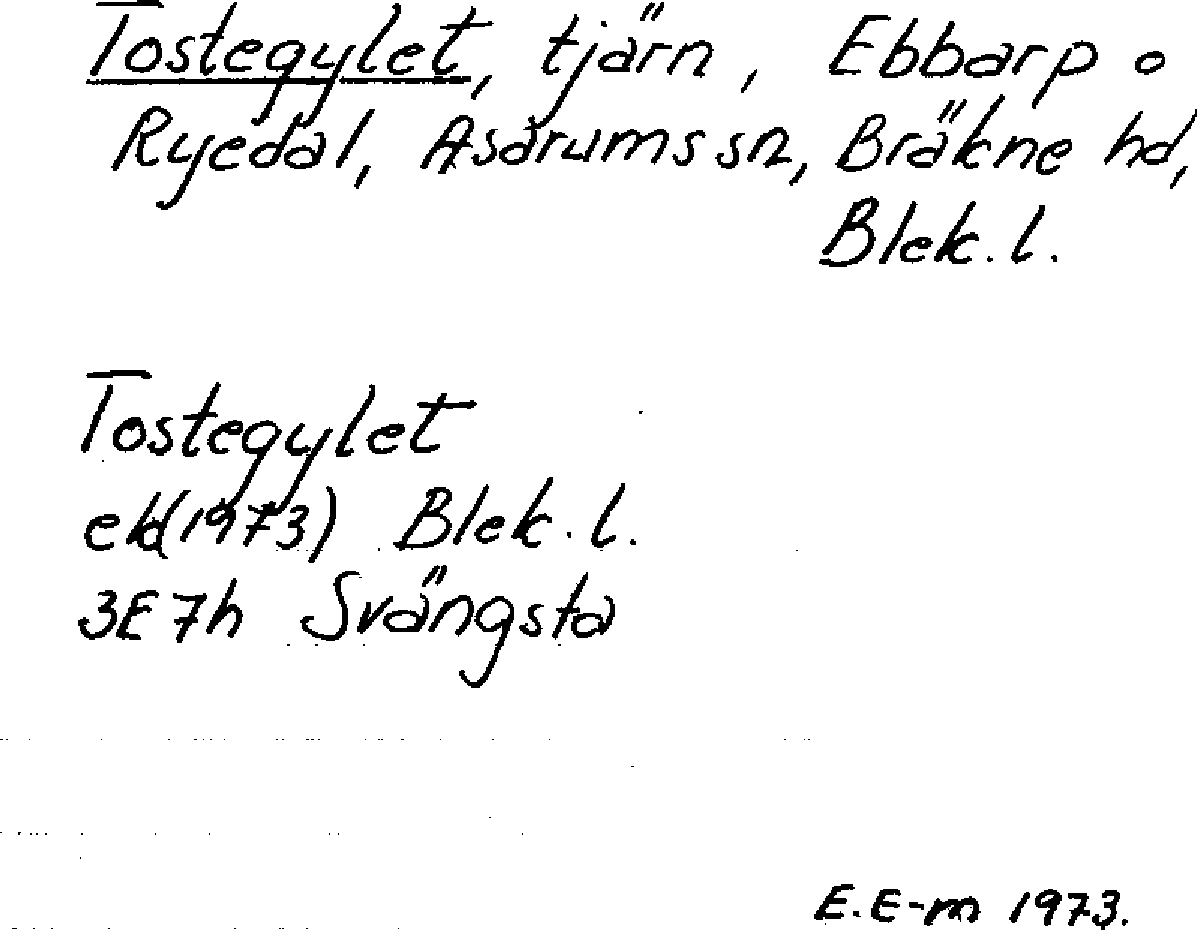 Tostegylet, tjärn, Ebbarp o
Ryedal, Asarums sn, Bräkne hd,
Blek. l.
Tostegylet
ekd(1973) Blek. l.
3E7h Svängsta
E.E-m 1973.